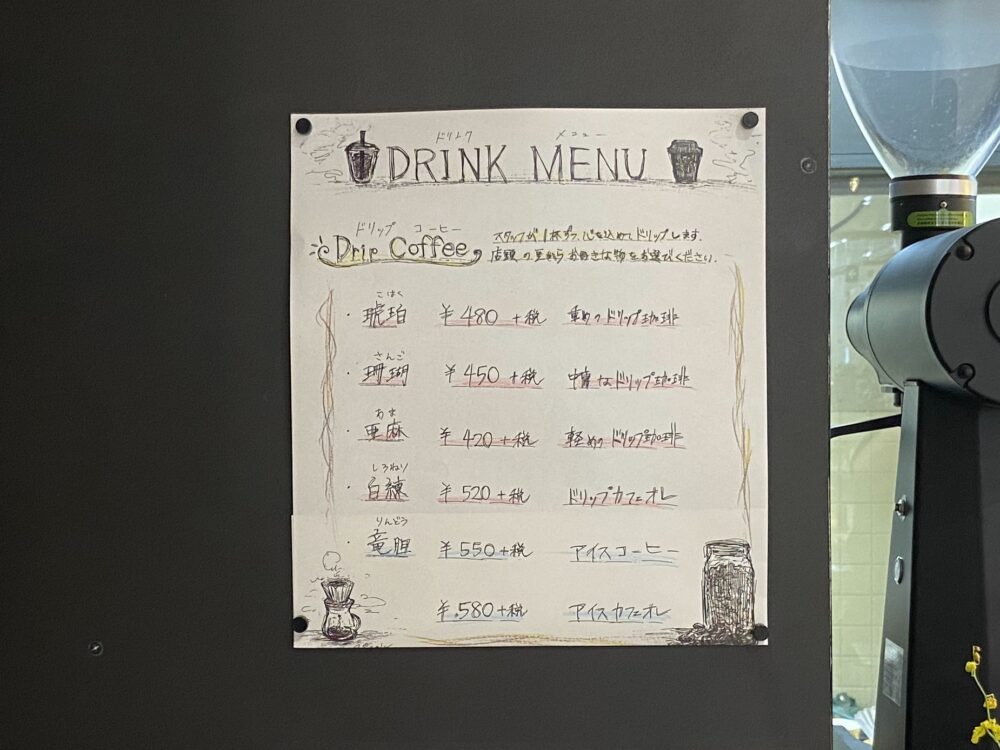 ドリンク メニュー
DRINK MENU
ドリップ コーヒー
Drip Coffee
スタッフが1杯ずつ、心を込めてドリップします。
店頭の豆からお好きな物をお選びください。
こはく
・琥珀 ¥480+税 重めのドリップ珈琲
さんご
・珊瑚 ¥450+税 中庸なドリップ珈琲
あま
・亜麻 ¥420+税 軽めのドリップ珈琲
しろねり
・白練 ¥520+税 ドリップカフェオレ
りんどう
・竜胆 ¥550+税 アイスコーヒー
¥580+税 アイスカフェオレ